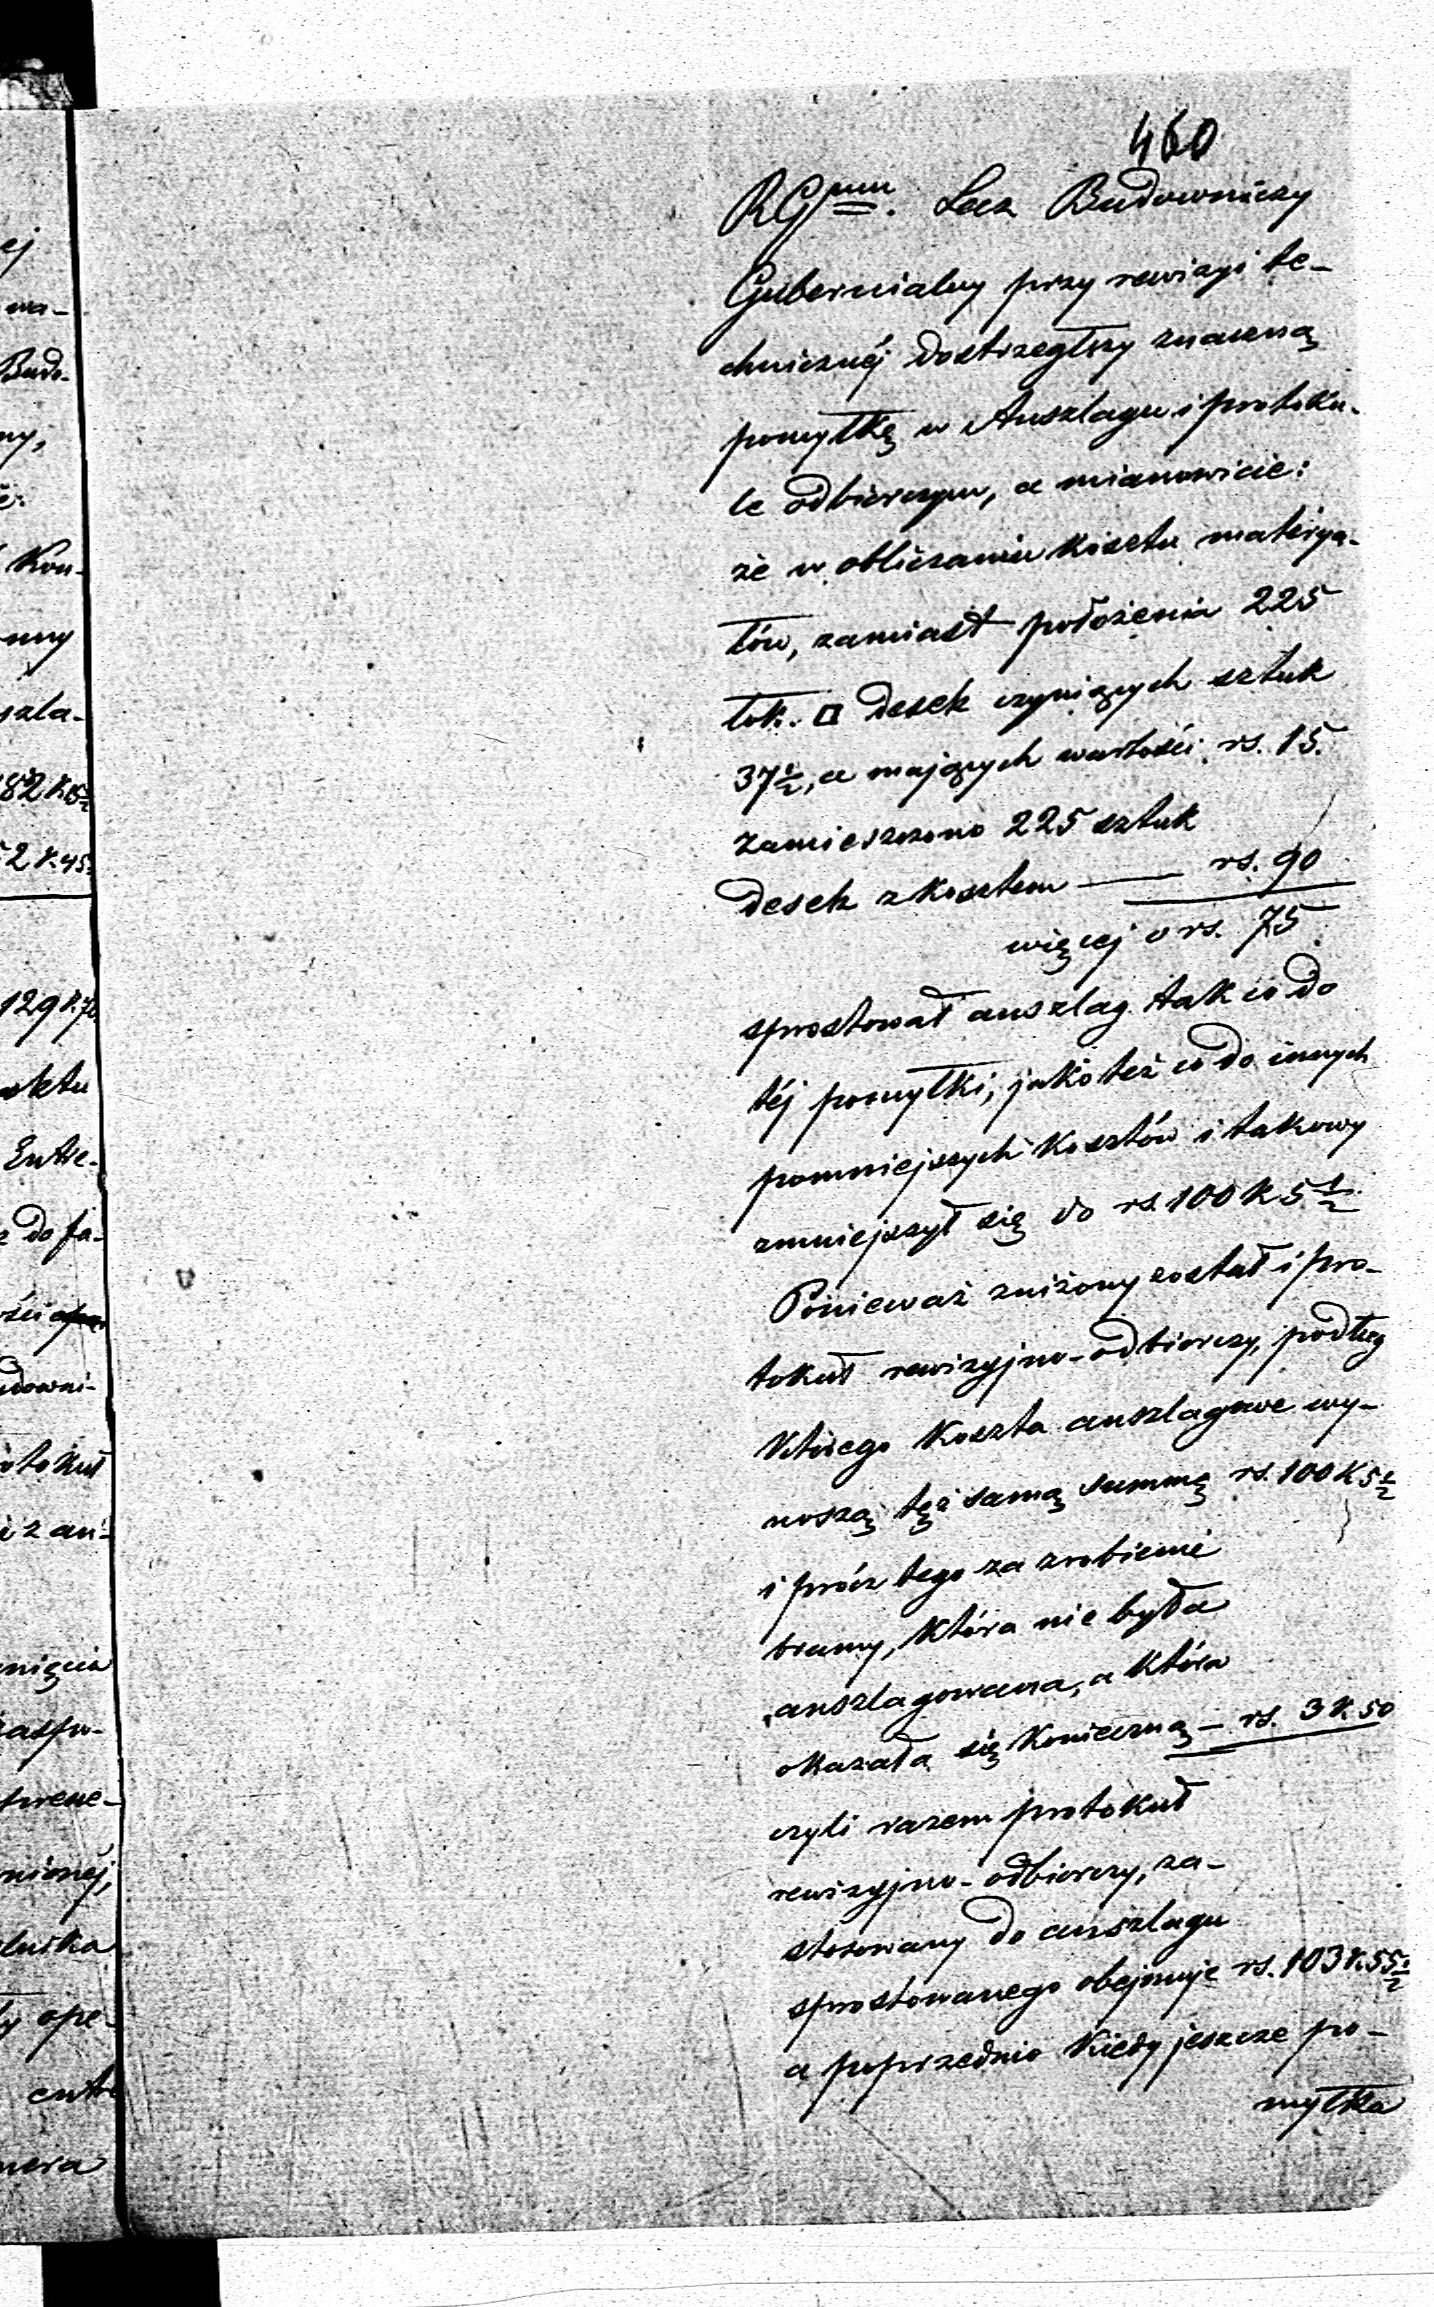 460
RGnm. Lecz Budowniczy
Gubernialny przy rewizyi te-
chnicznéj dostrzegłszy znaczną
pomyłkę w Anszlagu i protoku-
le odbiorczym, a mianowicie:
że w obliczaniu kosztu materya-
łów, zamiast położenia 225
łok. □ desek czyniących sztuk
37½, a mających wartości rs. 15.
zamieszczono 225 sztuk
desek z kosztem — rs. 90
więcej o rs. 75
sprostował anszlag tak co do
téj pomyłki, jakoteż co do innych
pomniejszych kosztów i takowy
zmniejszył się do rs. 100 k 5½
Ponieważ zniżony został i pro-
tokuł rewizyjno-odbiorczy, podług
którego koszta anszlagowe wy-
noszą też samą summę rs. 100 k 5½
i prócz tego za zrobienie
bramy, która nie była
anszlagowana, a która
okazała się konieczną — rs. 3 k. 50
czyli razem protokuł
rewizyjno-odbiorczy, za-
stosowany do anszlagu
sprostowanego obejmuje rs. 103 k. 55½
a poprzednio kiedy jeszcze po-
myłka